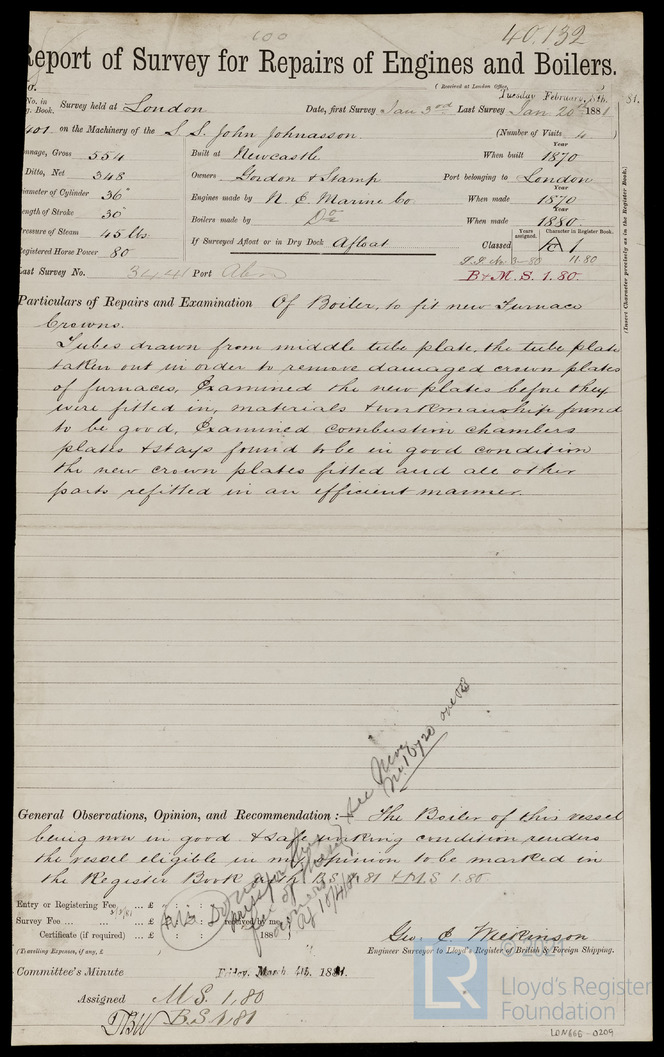 100
40.132
Report of Survey for Repairs of Engines and Boilers.
(Received at London Office,
Tuesday February 8th. 81.
No. in Reg. Book. Survey held at London Date, first Survey Jan 3rd Last Survey Jan 20th 1881
401 on the Machinery of the S.S. John Johnasson (Number of Visits 4)
Tonnage, Gross 554 Built at Newcastle When built Year 1870
Ditto, Net 348 Owners Gordon & Stamp Port belonging to London
Diameter of Cylinder 36" Engines made by N. E. Marine Co When made Year 1870
Length of Stroke 30" Boilers made by Do When made Year 1880
Pressure of Steam 45 lbs
Registered Horse Power 80 If Surveyed Afloat or in Dry Dock Afloat Classed Years assigned. Character in Register Book. 1
3-80 11.80
Last Survey No. 3441 Port B&M.S. 1.80.
(Insert Character precisely as in the Register Book.)
Particulars of Repairs and Examination Of Boiler, to fit new Furnace
Crowns.
Tubes drawn from middle tube plate, the tube plate
taken out in order to remove damaged crown plates
of furnaces, Examined the new plates before they
were fitted in, materials & workmanship found
to be good, Examined combustion chambers
plates & stays found to be in good condition
the new crown plates fitted and all other
parts refitted in an efficient manner.
General Observations, Opinion, and Recommendation:— The Boiler of this vessel
being now in good & safe working condition renders
the vessel eligible in my opinion to be marked in
the Register Book B.S. 1.81 & M.S 1.80.
Entry or Registering Fee ... £ : :
Survey Fee ... ... £ : : received by me,
Certificate (if required) ... £ : : 188
(Travelling Expenses, if any, £ )
Geo. E. Wilkinson
Engineer Surveyor to Lloyd's Register of British & Foreign Shipping.
Committee's Minute Friday, March 4th. 1881.
Assigned M S. 1,80
B.S 1,81
© 2021
LR
Lloyd's Register
Foundation
LON666-0209